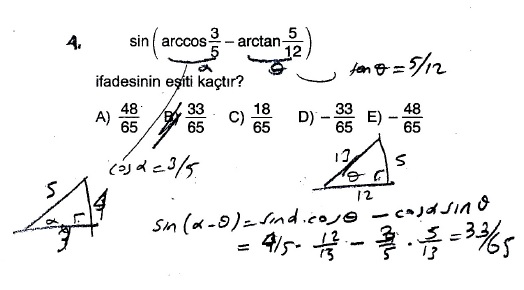 4. sin(arccos 3/5 - arctan 5/12)
α θ
tan θ = 5/12
ifadesinin eşiti kaçtır?
A) 48/65 B) 33/65 C) 18/65 D) - 33/65 E) - 48/65
cos α = 3/5
5 α 4 3
13 θ 5 12
sin (α - θ) = sin α . cos θ - cos α sin θ
= 4/5 . 12/13 - 3/5 . 5/13 = 33/65